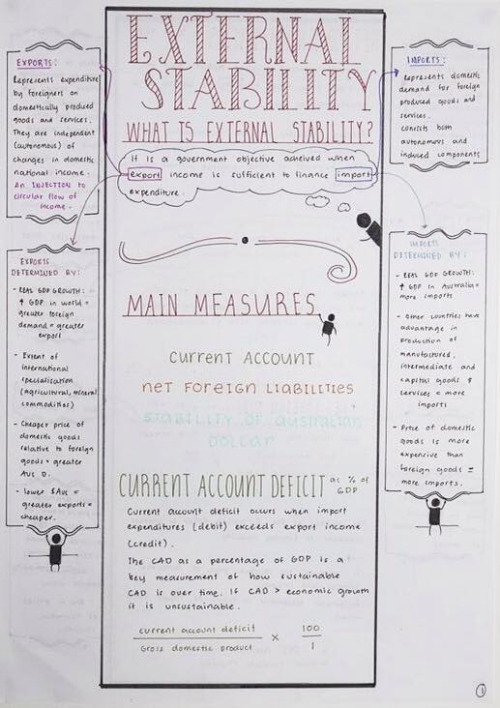 EXTERNAL
STABILITY
WHAT IS EXTERNAL STABILITY?
It is a government objective acheived when
export income is sufficient to finance import
expenditure.
EXPORTS:
Represents expenditure
by foreigners on
domestically produced
goods and services.
They are independent
(autonomous) of
changes in domestic
national income.
an INJECTION to
circular flow of
income.
IMPORTS:
Represents domestic
demand for foreign
produced goods and
services.
consists both
autonomous and
induced components
EXPORTS
DETERMINED BY:
- REAL GDP GROWTH:
↑ GDP in world =
greater foreign
demand = greater
export
- Extent of
international
specialisation
(agricultural, mineral
commodities)
- Cheaper price of
domestic goods
relative to foreign
goods = greater
Aus D.
- lower $Aus =
greater exports =
cheaper.
IMPORTS
DETERMINED BY:
- REAL GDP GROWTH:
↑ GDP in Australia =
more imports
- Other countries have
advantage in
production of
manufactured,
intermediate and
capital goods &
services = more
imports
- Price of domestic
goods is more
expensive than
foreign goods =
more imports.
MAIN MEASURES
Current Account
net Foreign Liabilities
Stability of Australian
Dollar
CURRENT ACCOUNT DEFICIT as % of
GDP
Current account deficit occurs when import
expenditures (debit) exceeds export income
(credit).
The CAD as a percentage of GDP is a
key measurement of how sustainable
CAD is over time. If CAD > economic growth
it is unsustainable.
current account deficit × 100
Gross domestic product 1
1